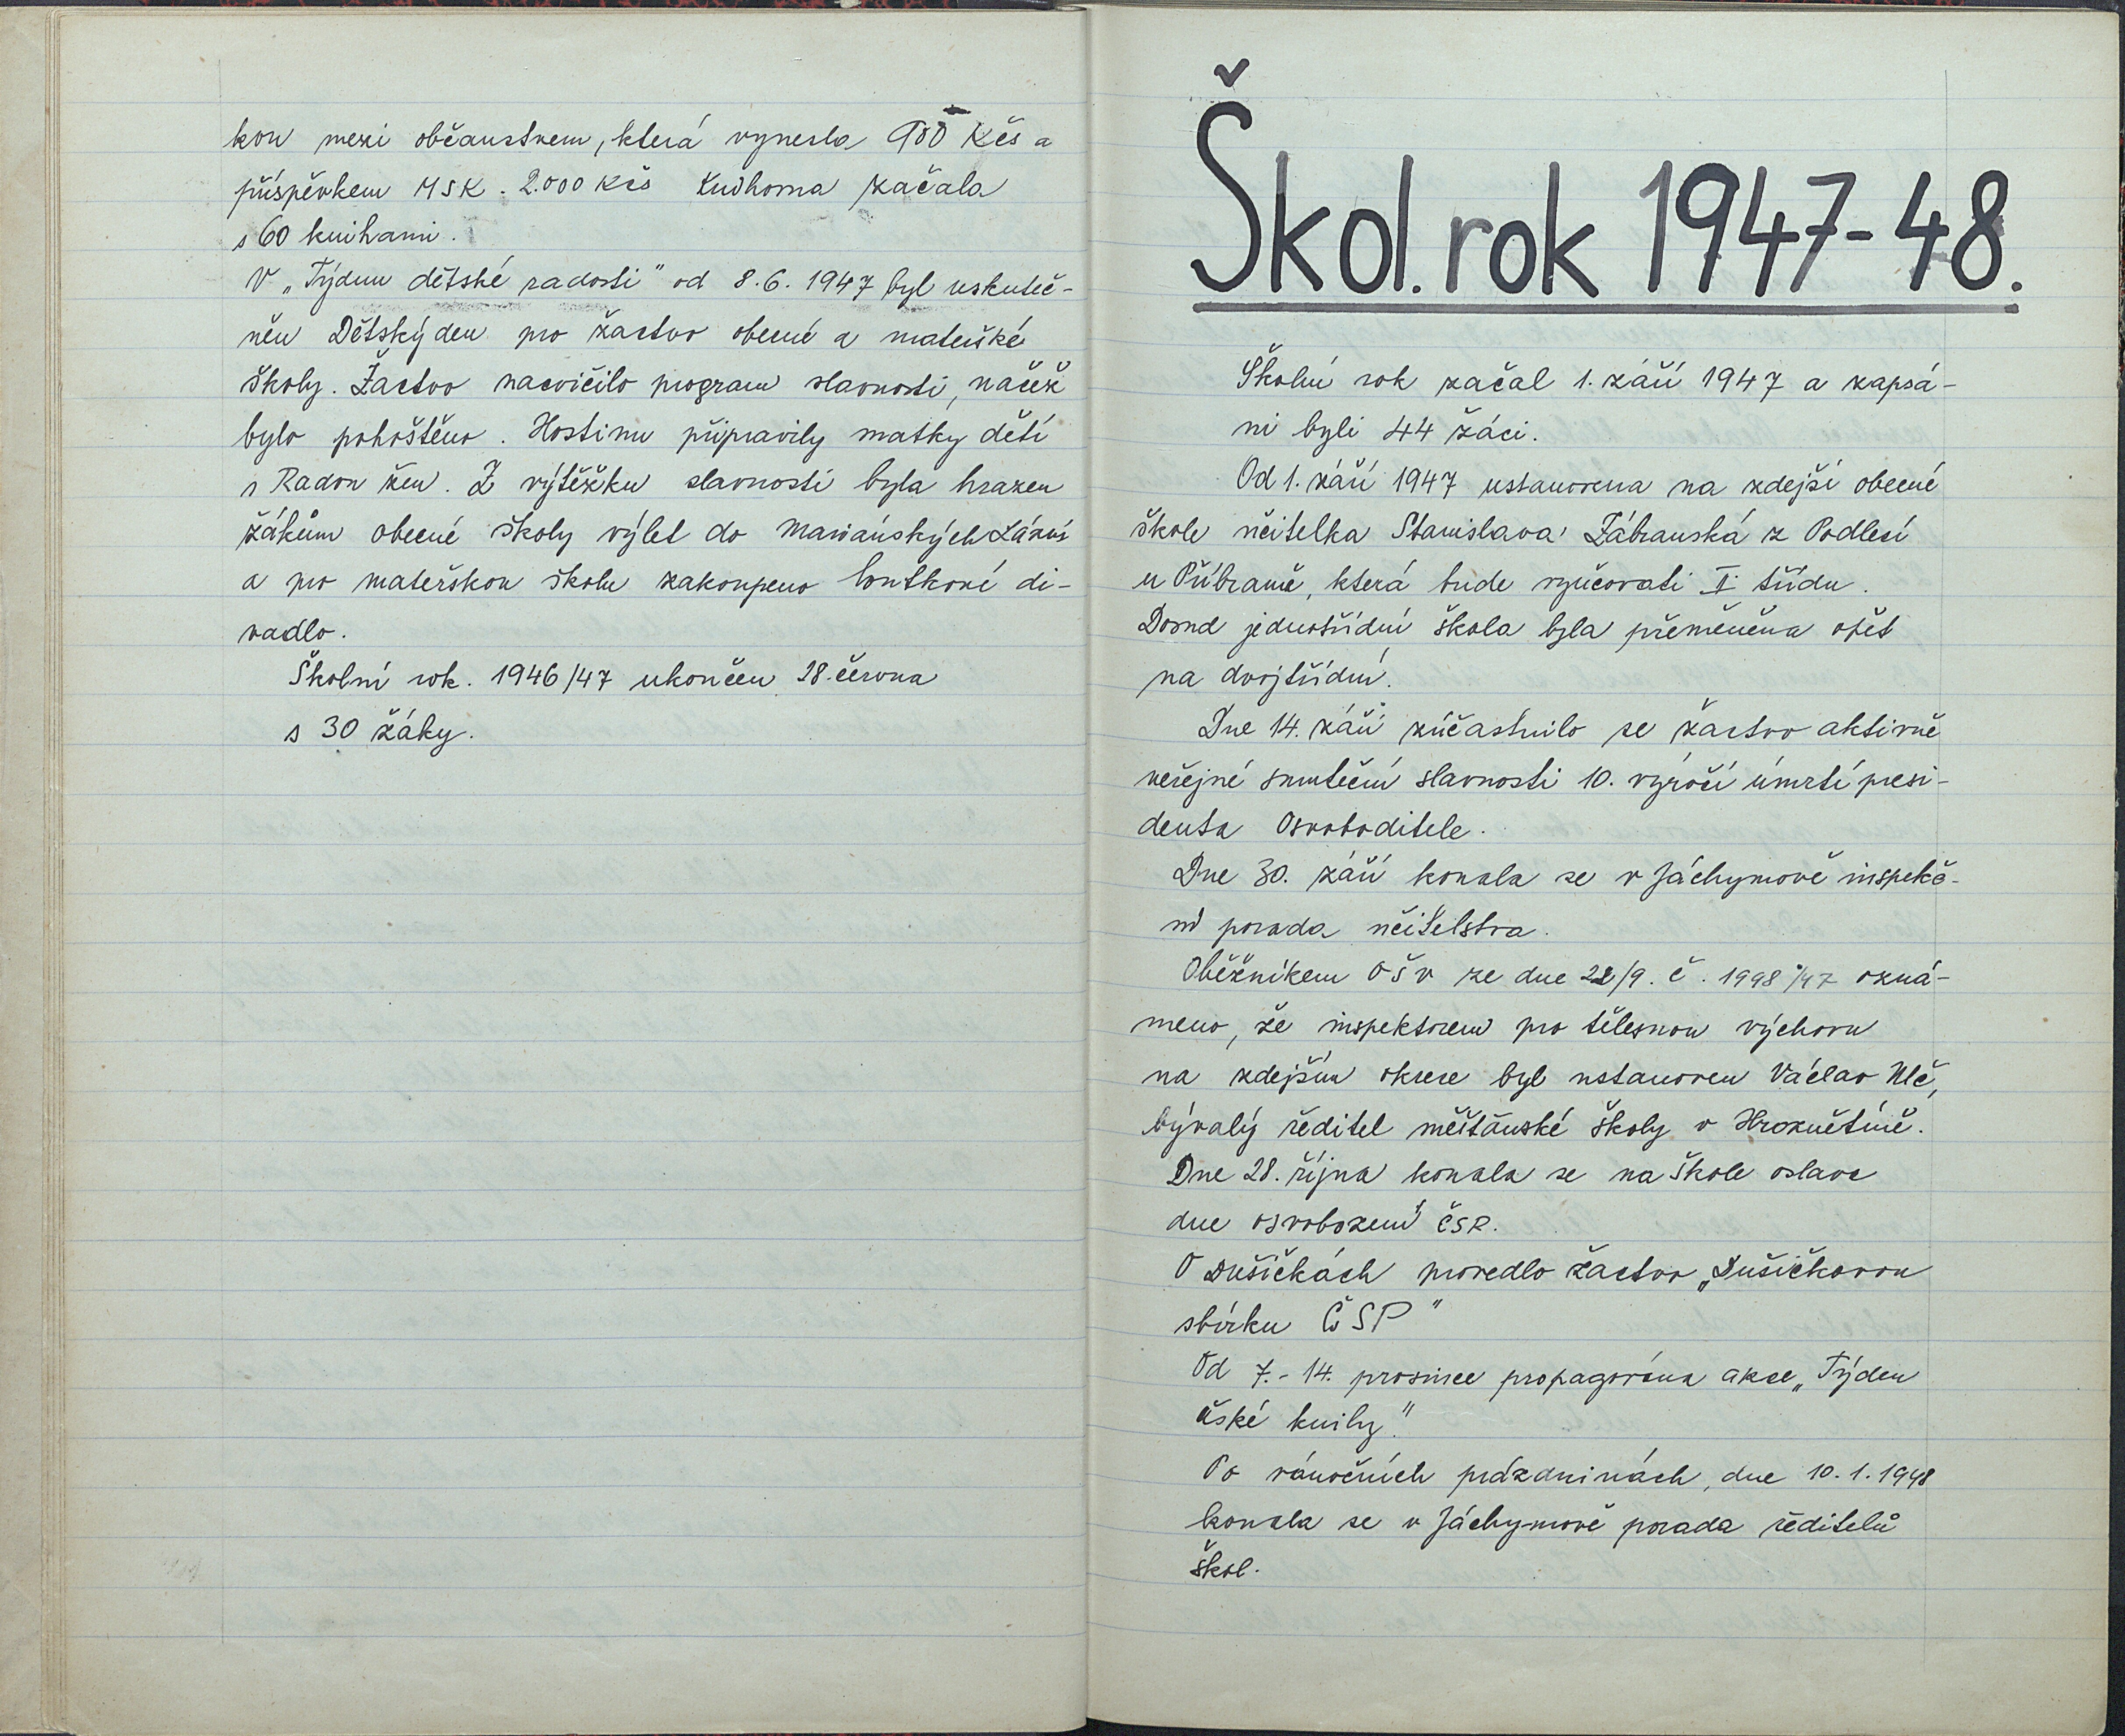 kou mezi občanstvem, která vynesla 900 Kčs a
příspěvkem MSK. 2.000 Kčs Knihovna začala
s 60 knihami.
V „Týdnu dětské radosti" od 8.6. 1947 byl uskuteč-
něn Dětský den pro žactvo obecné a mateřské
školy. Žactvo nacvičilo program slavnosti, načež
bylo pohoštěno. Hostinu připravily matky dětí
s Radou žen. Z výtěžku slavnosti byla hrazen
žákům obecné školy výlet do Mariánských Lázní
a pro mateřskou školu zakoupeno loutkové di-
vadlo.
Školní rok. 1946/47 ukončen 28. června
s 30 žáky.
Škol. rok 1947-48.
Školní rok začal 1. září 1947 a zapsá-
ni byli 44 žáci.
Od 1. září 1947 ustanovena na zdejší obecné
škole učitelka Stanislava Zábranská z Podlesí
u Příbramě, která bude vyučovati I. třídu.
Dosud jednotřídní škola byla přeměněna opět
na dvojtřídní.
Dne 14. září zúčastnilo se žactvo aktivně
veřejné smuteční slavnosti 10. výročí úmrtí presi-
denta Osvoboditele.
Dne 30. září konala se v Jáchymově inspekč-
ní porada učitelstva.
Oběžníkem OŠV ze dne 22/9. č. 1998/47 ozná-
meno, že inspektorem pro tělesnou výchovu
na zdejším okrese byl ustanoven Václav Ulč,
bývalý ředitel měšťanské školy v Hroznětíně.
Dne 28. října konala se na škole oslava
dne osvobození ČSR.
O Dušičkách provedlo žactvo „Dušičkovou
sbírku ČSP"
Od 7.- 14. prosince propagována akce „Týden
české knihy".
Po vánočních prázdninách, dne 10. 1. 1948
konala se v Jáchymově porada ředitelů
škol.